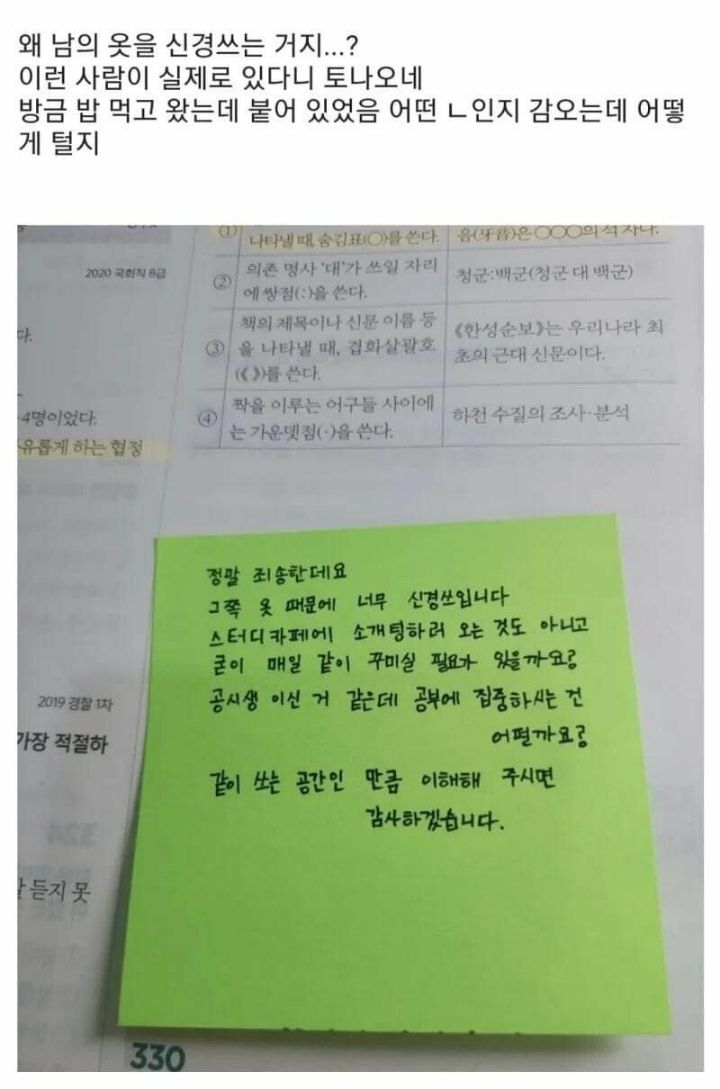 왜 남의 옷을 신경쓰는 거지...?
이런 사람이 실제로 있다니 토나오네
방금 밥 먹고 왔는데 붙어 있었음 어떤 ㄴ인지 감오는데 어떻
게 털지
① 나타낼 때, 숨김표(○)를 쓴다. 음(牙音)은 ○○○의 석 자다.
2020 국회직 8급
② 의존 명사 '대'가 쓰일 자리
에 쌍점(:)을 쓴다.
청군:백군(청군 대 백군)
다.
③ 책의 제목이나 신문 이름 등
을 나타낼 때, 겹화살괄호
(《 》)를 쓴다.
《한성순보》는 우리나라 최
초의 근대 신문이다.
4명이었다.
유롭게 하는 협정
④ 짝을 이루는 어구들 사이에
는 가운뎃점(·)을 쓴다.
하천 수질의 조사·분석
정말 죄송한데요
그쪽 옷 때문에 너무 신경쓰입니다
스터디카페에 소개팅하러 오는 것도 아니고
굳이 매일 같이 꾸미실 필요가 있을까요?
공시생 이신 거 같은데 공부에 집중하시는 건
어떨까요?
같이 쓰는 공간인 만큼 이해해 주시면
감사하겠습니다.
2019 경찰 1차
가장 적절하
듣지 못
330